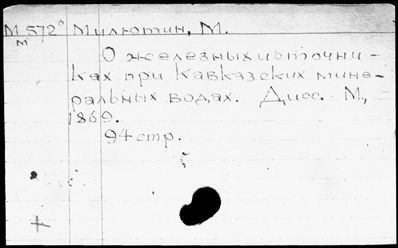 М 572° Милютин, М.
м
О железных источни-
ках при Кавказских мине-
ральных водах. Дисс. М.,
1869.
94 стр.